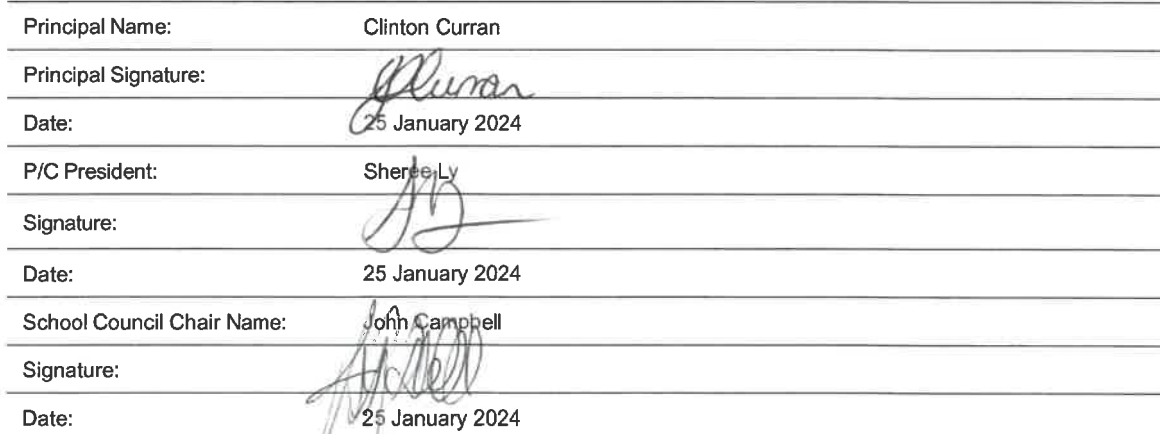 Principal Name: Clinton Curran
Principal Signature:
Date: 25 January 2024
P/C President: Sheree Ly
Signature:
Date: 25 January 2024
School Council Chair Name: John Campbell
Signature:
Date: 25 January 2024